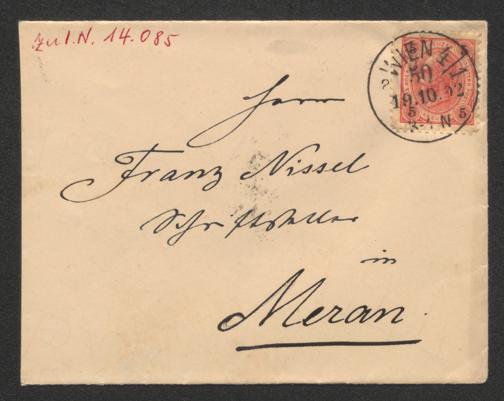 zu I.N. 14.085
WIEN 4/1
50
19.10.92
5 5
N
Herrn
Franz Nissel
Schriftsteller
in
Meran.